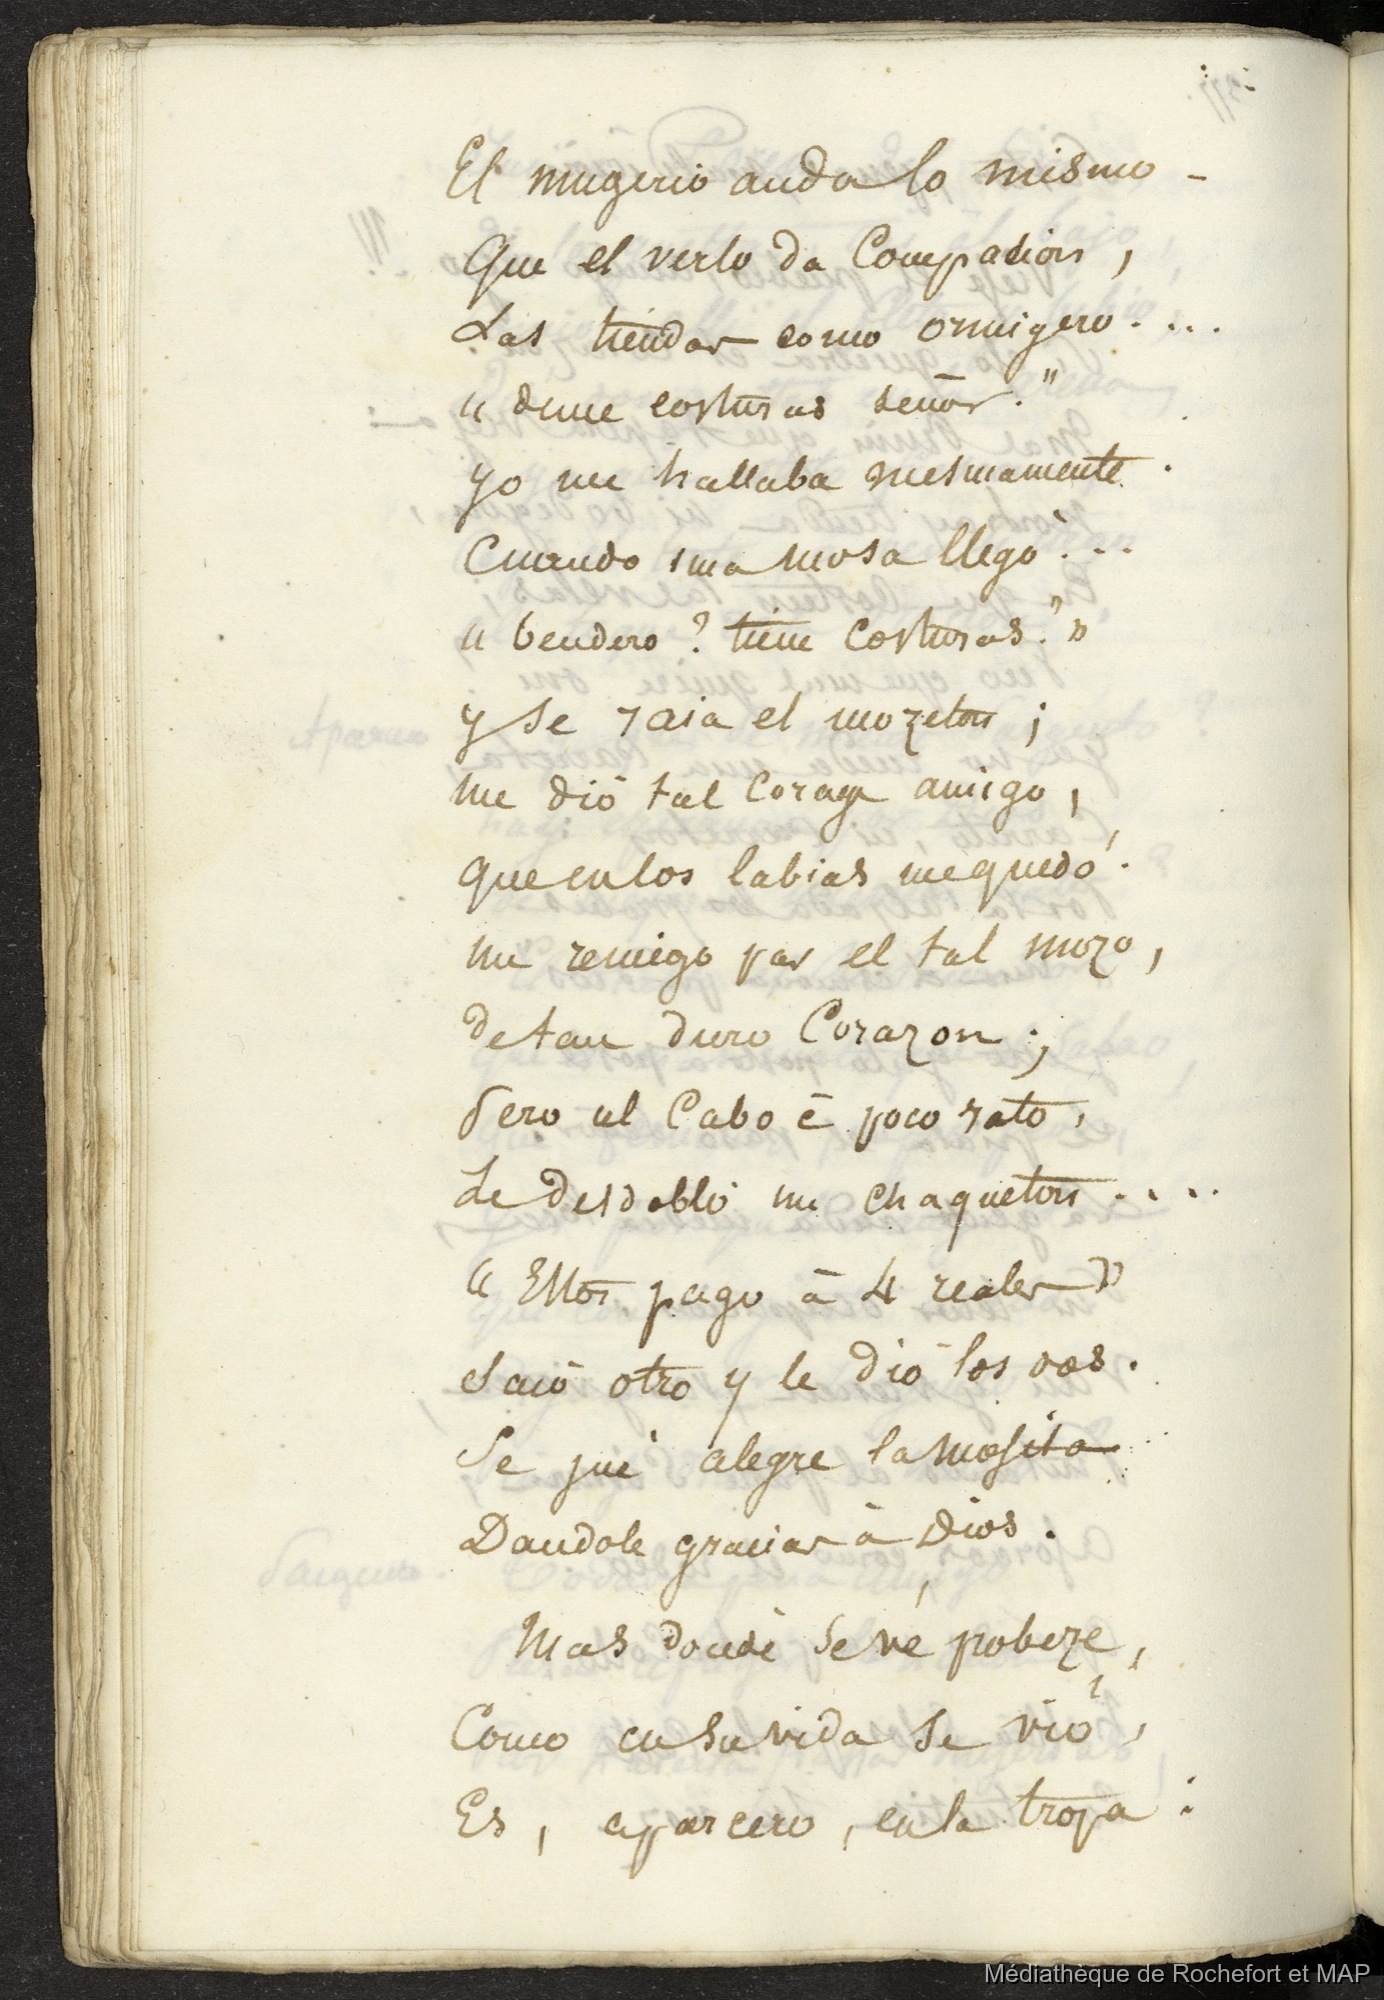 El mugerio anda lo mismo -
Que el verlo da Compasion,
Las tiendas como ormigero....
"deme costuras señor."
yo me hallaba mesmamente.
Cuando una mosa llegó...
"bendero? tiene costuras?"
y se raia el mozeton;
me dió tal corage amigo,
que en los labias me quedó.
me remigo por el tal mozo,
de tan duro Corazon;
Pero al Cabo é poco rato,
Le desdobló un chaqueton....
"Estos pago á 4 reales"
Sacó otro y le dió los dos.
Se jué alegre la mosita
Dandole gracias á Dios.
Mas donde se vé pobeze,
Como en su vida se vió,
Es, aparcero, en la tropa:
Médiathèque de Rochefort et MAP